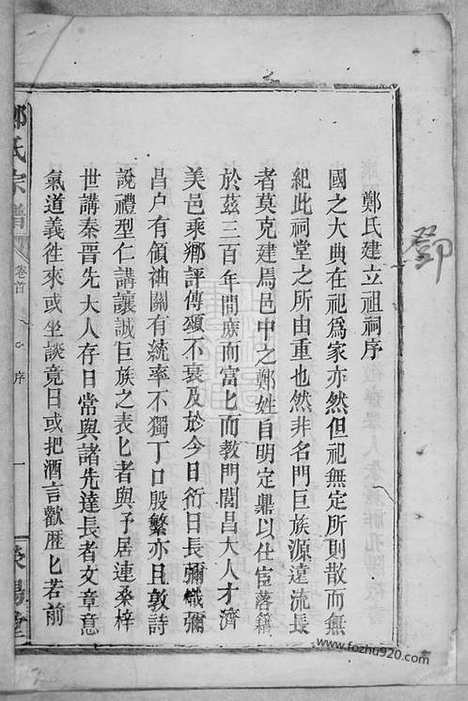 鄧
鄭氏建立祖祠序
國之大典在祀爲家亦然但祀無定所則散而無
紀此祠堂之所由重也然非名門巨族源遠流長
者莫克建焉邑中之鄭姓自明定鼎以仕宦落籍
於茲三百年間庶而富匕而教門閭昌大人才濟
美邑乘鄉評傳頌不衰及於今日衍日長彌熾彌
昌户有領袖闔有統率不獨丁口殷繁亦且敦詩
說禮型仁講讓誠巨族之表匕者與予居連桑梓
世講秦晉先大人存日常與諸先達長者文章意
氣道義徃來或坐談竟日或把酒言歡歷匕若前
鄭氏宗譜
卷首
序
一
榮陽堂
www.fozhu920.com